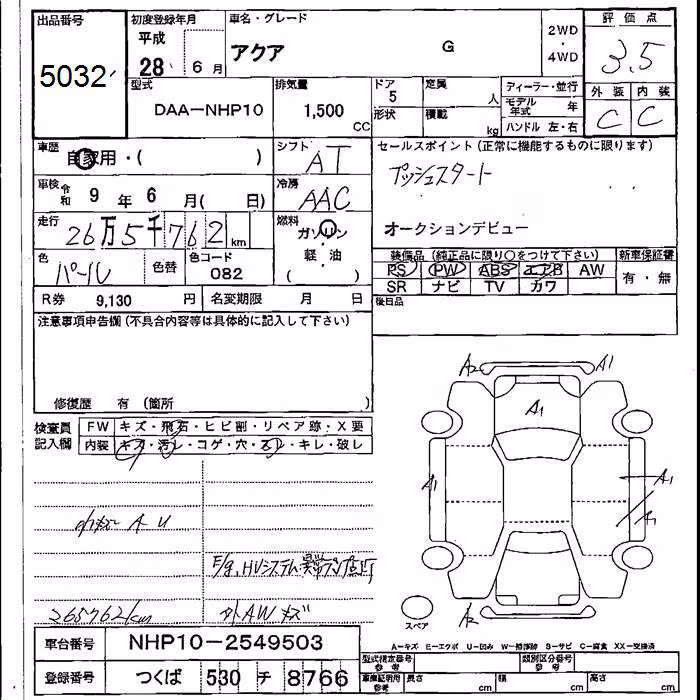 出品番号
5032
初度登録年月
平成
28 6月
車名・グレード
アクア G
2WD
・
4WD
評価点
3.5
外装 内装
C C
型式
DAA-NHP10
排気量
1,500
CC
ドア
5
形状
定員
人
積載
kg
ディーラー・並行
モデル年式 年
ハンドル 左・右
車歴
自家用・( )
シフト
AT
車検 令和 9年 6月( 日)
冷房
AAC
走行
26万5千762km
燃料
ガソリン
・
軽油
( )
色
パール
色替
色コード
082
R券 9,130 円
名変期限 月 日
セールスポイント(正常に機能するものに限ります)
プッシュスタート
オークションデビュー
装備品(純正品に限り○をつけて下さい)
PS PW ABS エアB AW
SR ナビ TV カワ
新車保証書
有・無
後日品
注意事項申告欄(不具合内容等は具体的に記入して下さい)
修復歴 有(箇所 )
検査員
記入欄
FW キズ・飛石・ヒビ割・リペア跡・X要
内装 キズ・汚レ・コゲ・穴・スレ・キレ・破レ
A U
E/g,HVシステム
265762km
外AWキズ
A2 A1
A1
A1
A1
A1
A2
スペア
車台番号 NHP10-2549503
登録番号 つくば 530 チ 8766
A-キズ E-エクボ U-凹み W-補修跡 S-サビ C-腐食 XX-交換済
型式指定番号
参考
類別区分番号
参考
車庫証明用
参考
長さ cm 幅 cm 高さ cm